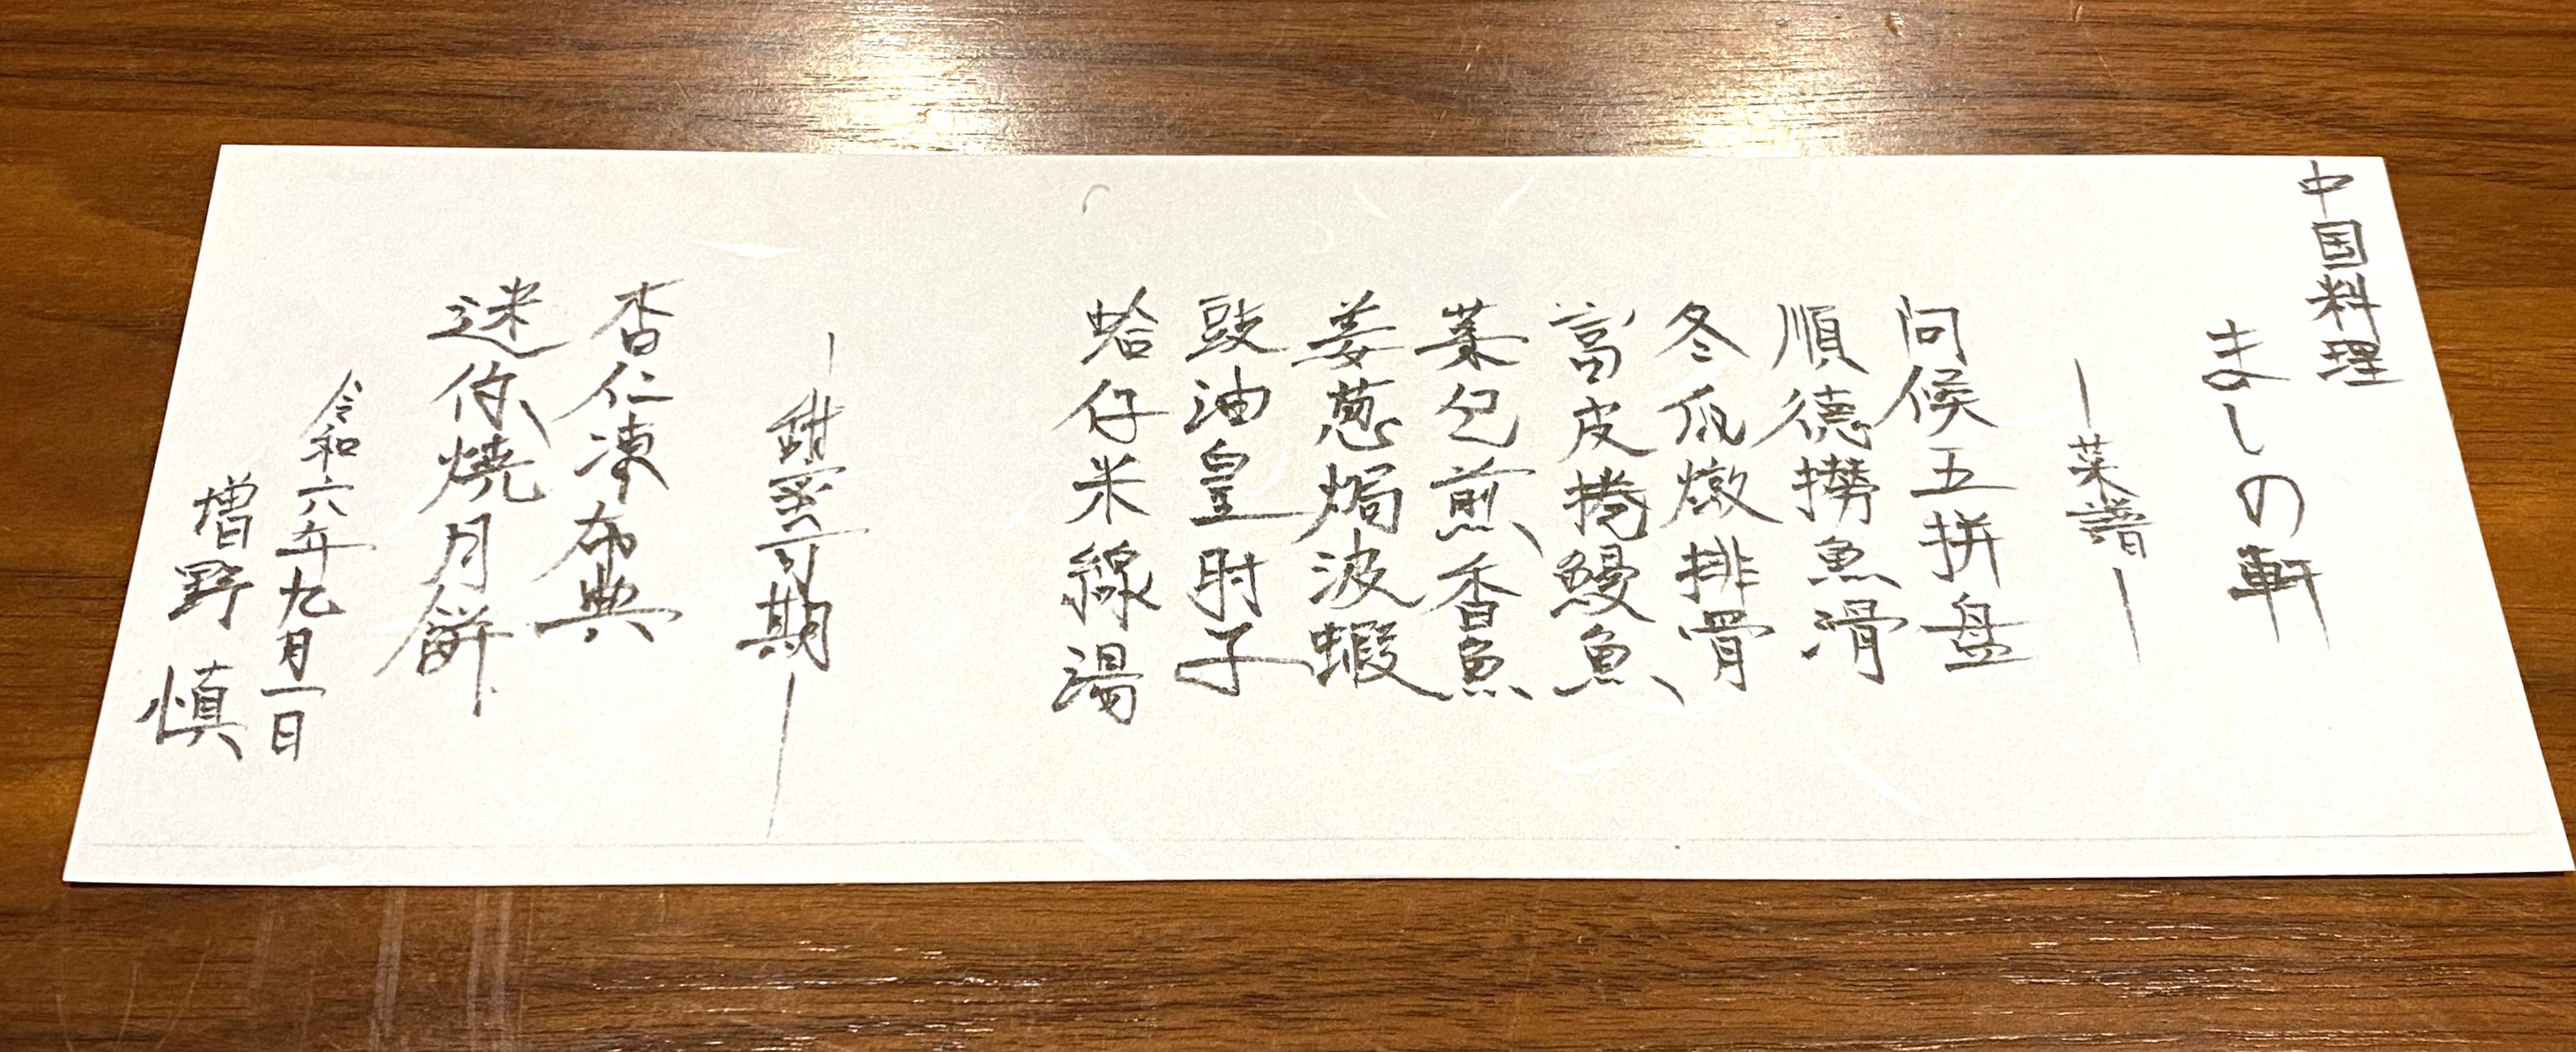 中国料理
ましの軒
ー菜譜ー
问候五拼盘
順徳撈魚滑
冬瓜燉排骨
富皮捲鰻魚
葉包煎香魚
姜葱焗波蝦
豉油皇肘子
蛤仔米線湯
ー甜蜜可期ー
杏仁凍布典
迷你燒月餅
令和六年九月一日
増野 慎